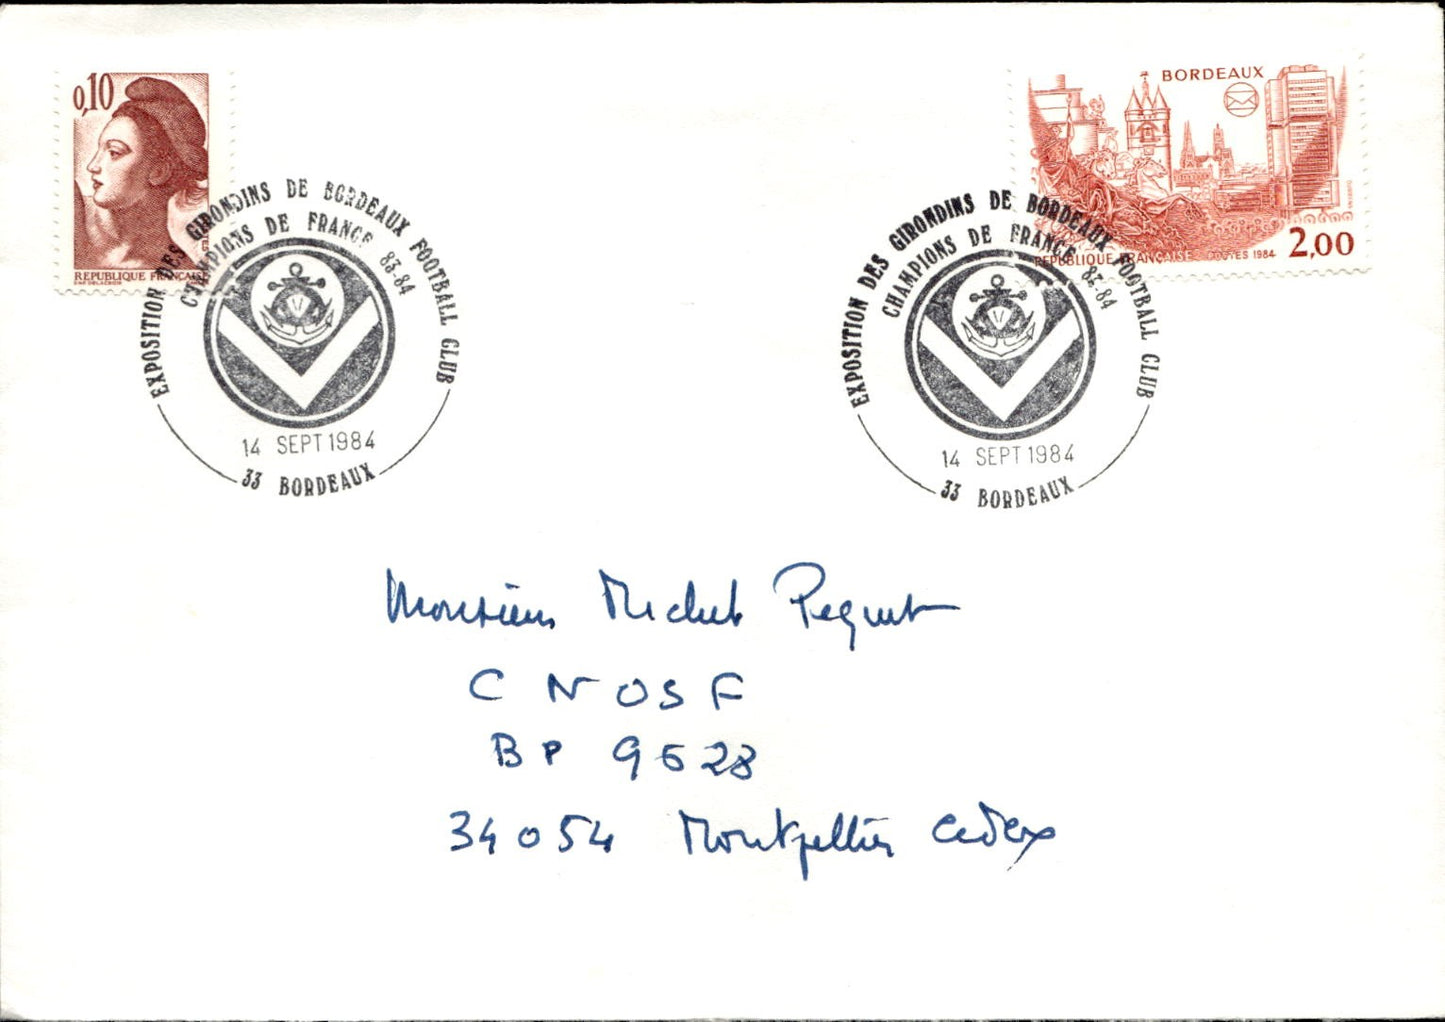 0,10
REPUBLIQUE FRANÇAISE
BORDEAUX
REPUBLIQUE FRANÇAISE POSTES 1984
2,00
EXPOSITION DES GIRONDINS DE BORDEAUX FOOTBALL CLUB
CHAMPIONS DE FRANCE 83-84
14 SEPT 1984
33 BORDEAUX
EXPOSITION DES GIRONDINS DE BORDEAUX FOOTBALL CLUB
CHAMPIONS DE FRANCE 83-84
14 SEPT 1984
33 BORDEAUX
Monsieur Michel Pequet
C N O S F
BP 9528
34054 Montpellier Cedex